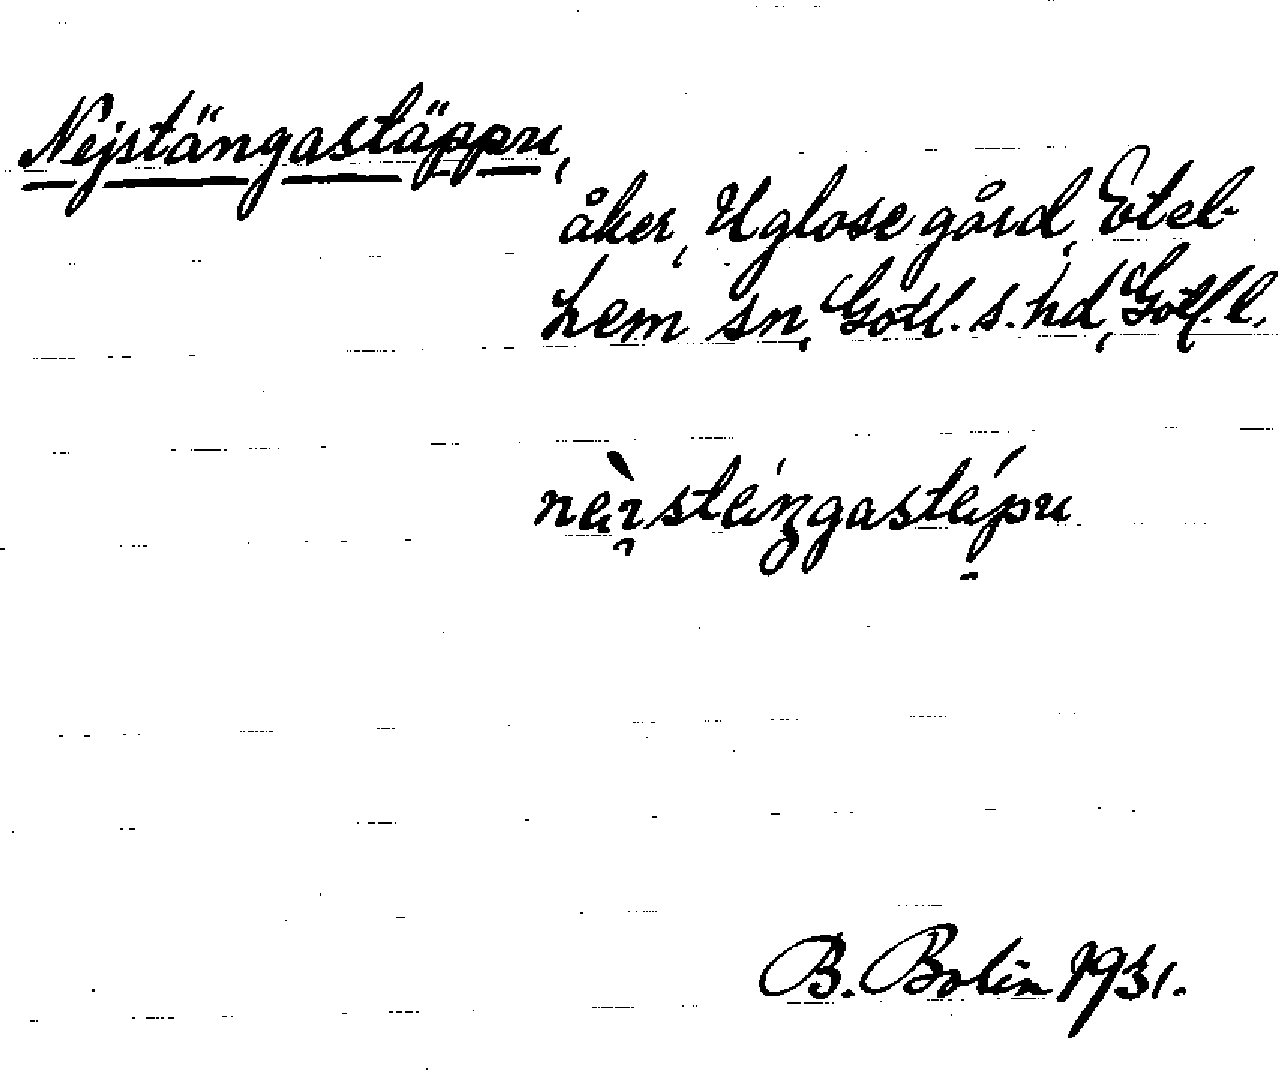 Nejstängastäppu,
åker, Uglose gård, Etel-
hem sn, Gotl. s. hd, Gotl. l.
B. Bolin 1931.